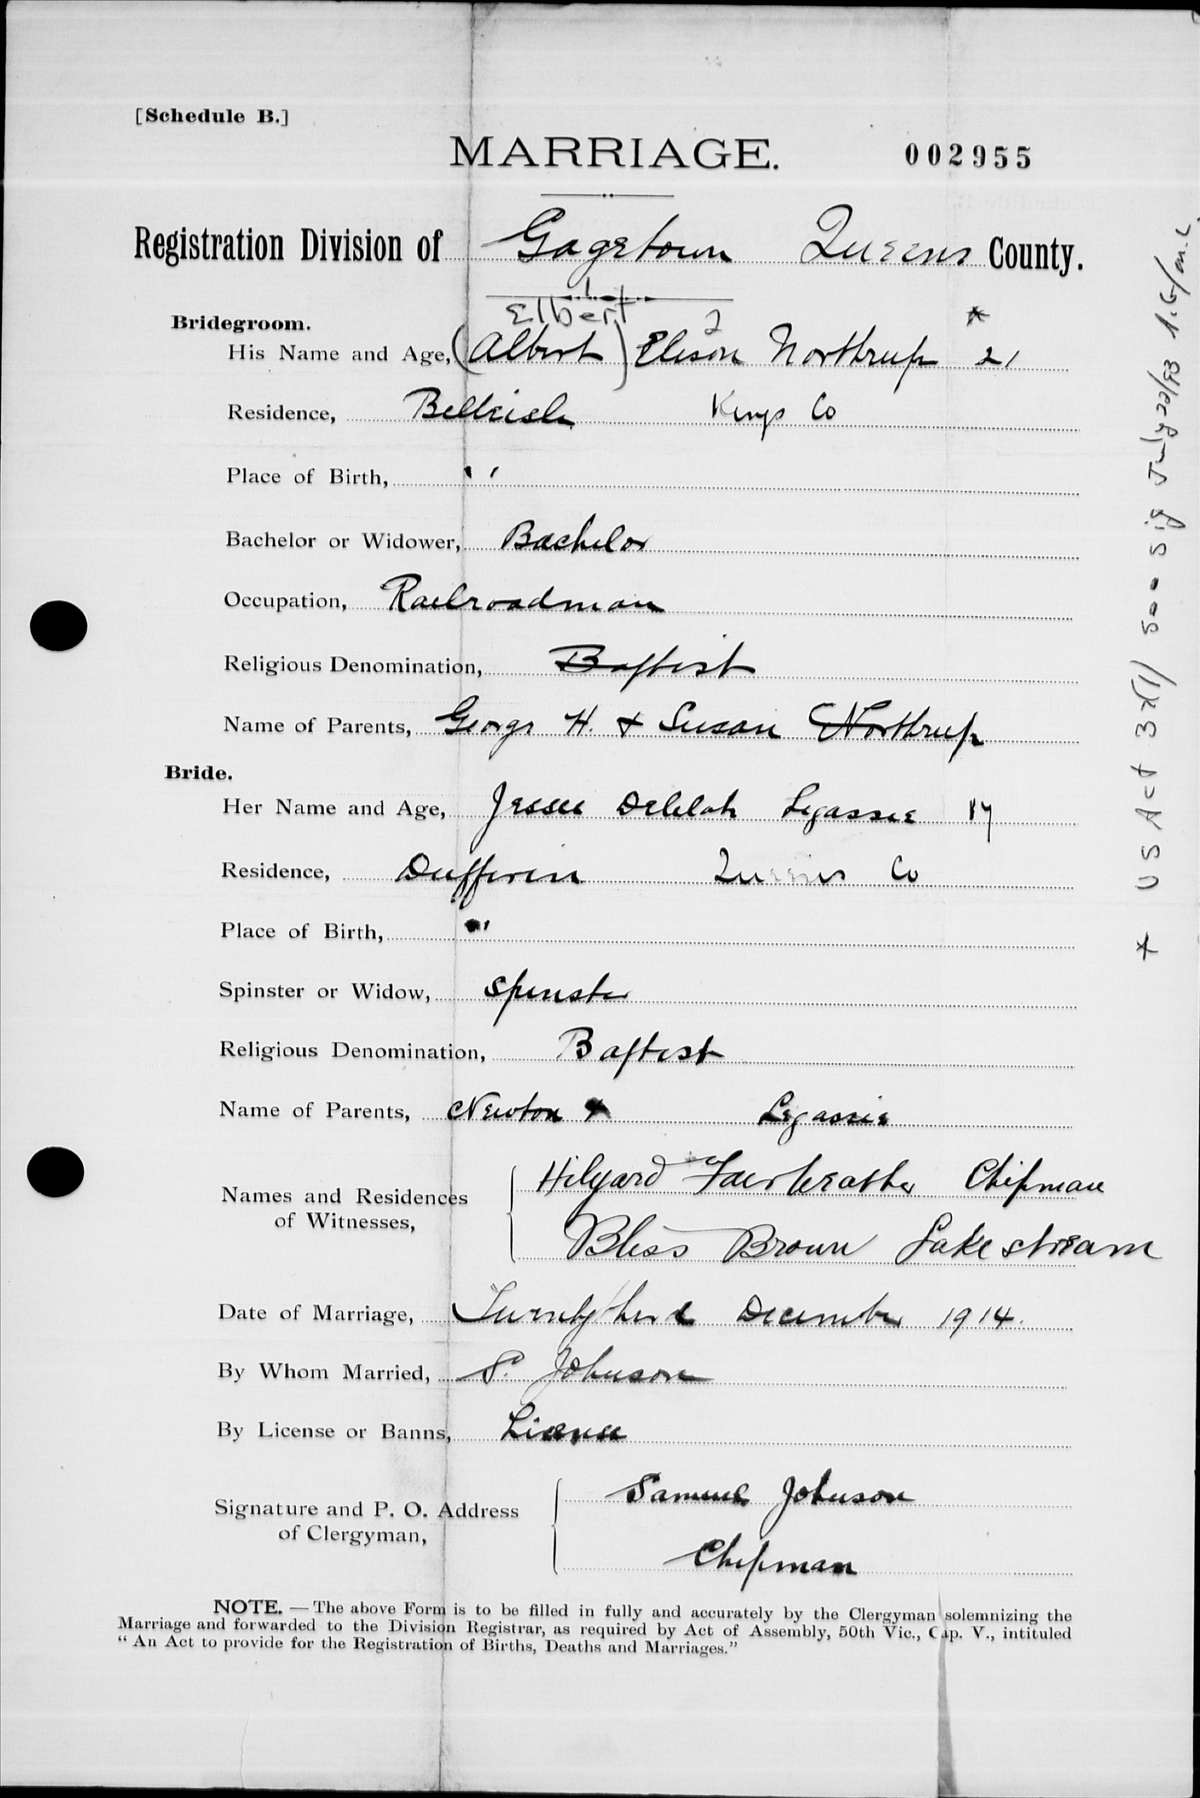 [Schedule B.]
MARRIAGE.
002955
Registration Division of Gagetown Queens County.
Bridegroom.
1
Elbert 2 *
His Name and Age, (Albert) Elison Northrup 21
Residence, Belleisle Kings Co
Place of Birth, " 
Bachelor or Widower, Bachelor
Occupation, Railroadman
Religious Denomination, Baptist
Name of Parents, George H. & Susan Northrup
Bride.
Her Name and Age, Jessie Delilah Legassie 17
Residence, Dufferin Queens Co
Place of Birth, "
Spinster or Widow, Spinster
Religious Denomination, Baptist
Name of Parents, Newton & Legassie
Names and Residences of Witnesses,
Hilyard Fairweather Chipman
Bliss Brown Lakestream
Date of Marriage, Twenty third December 1914.
By Whom Married, S. Johnson
By License or Banns, License
Signature and P. O. Address of Clergyman,
Samuel Johnson
Chipman
NOTE. — The above Form is to be filled in fully and accurately by the Clergyman solemnizing the
Marriage and forwarded to the Division Registrar, as required by Act of Assembly, 50th Vic., Cap. V., intituled
“ An Act to provide for the Registration of Births, Deaths and Marriages.”
* VS Act 3x(1) 500 Sig July 22/83